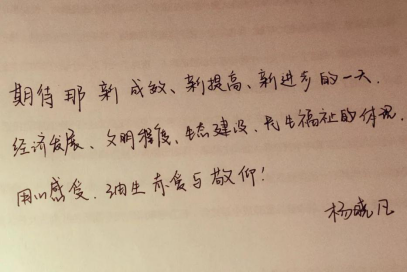 期待那新成效、新提高、新进步的一天.
经济发展、文明程度、生态建设、民生福祉的体现.
用心感受.油生亦爱与敬仰!
杨晓凡